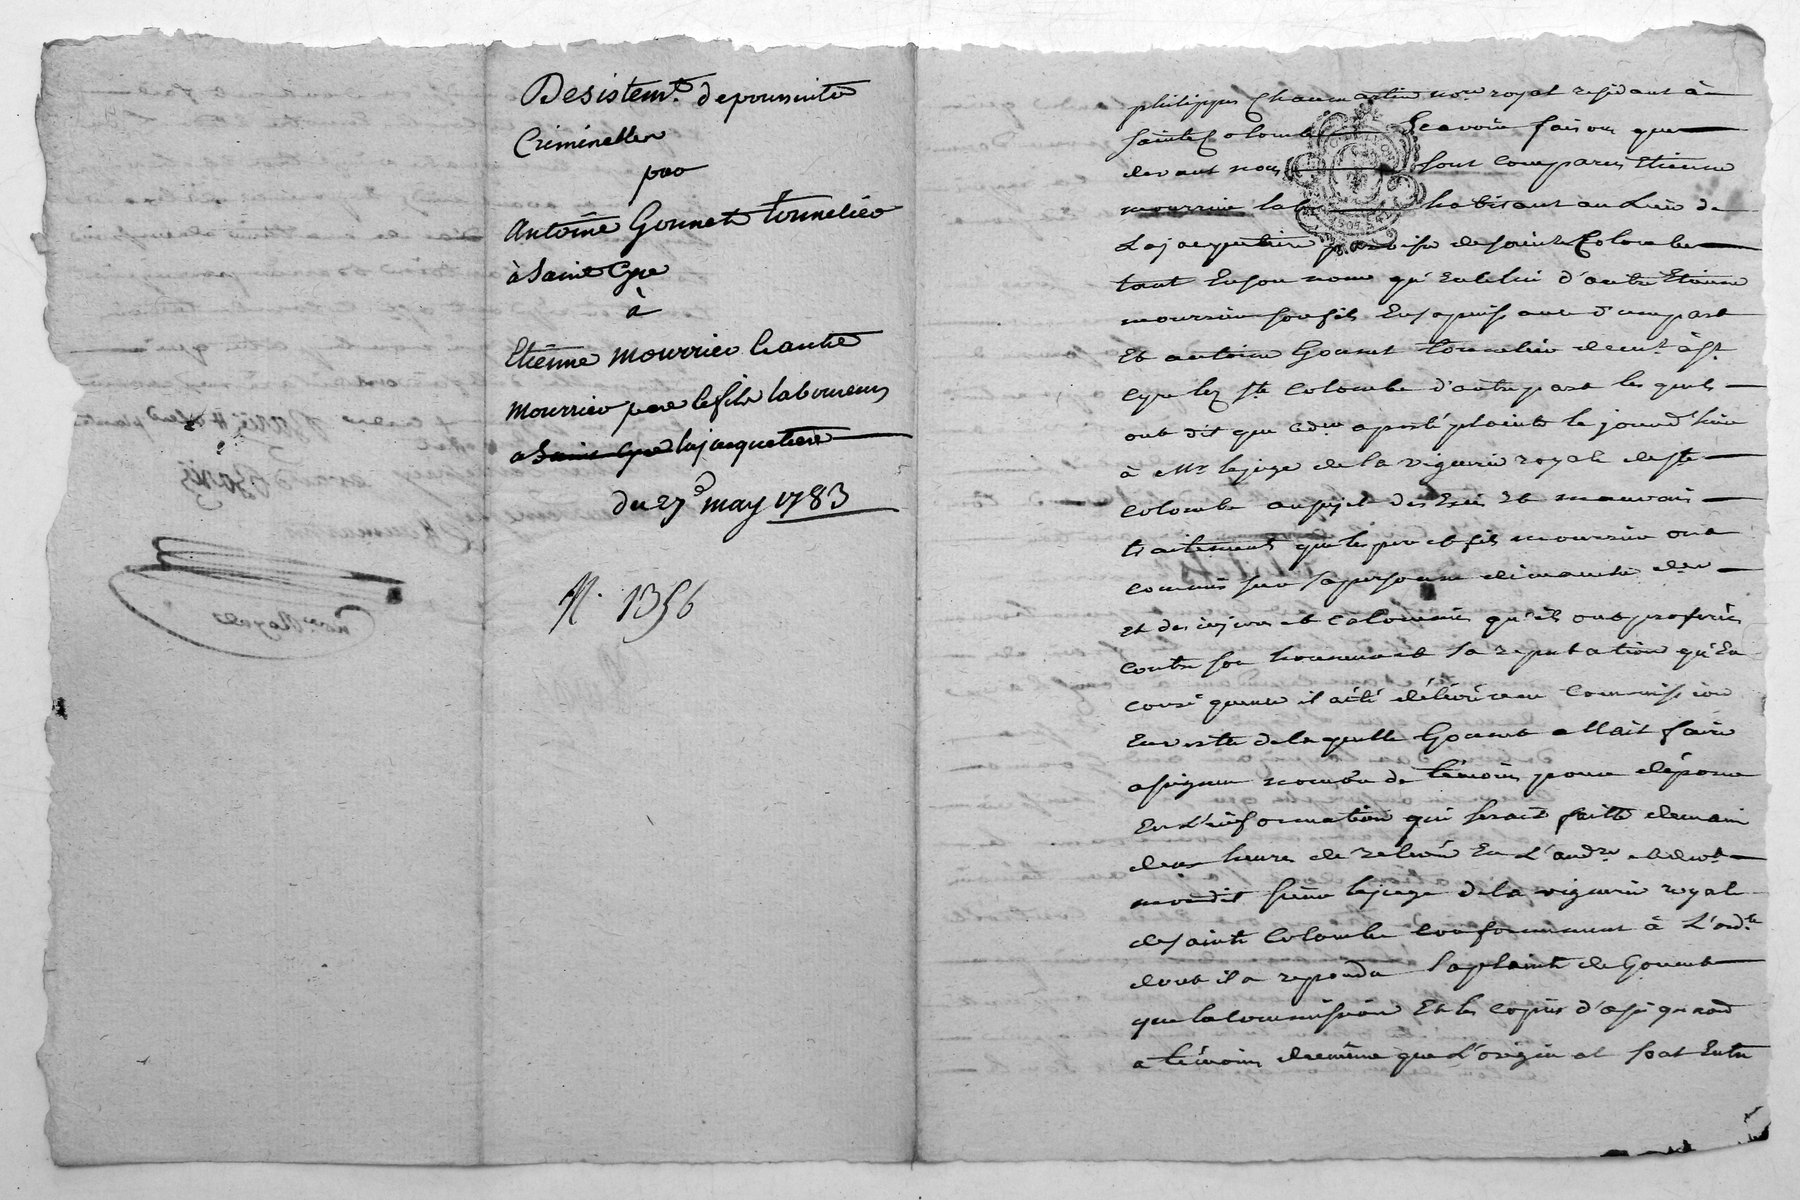 Desistem.t de poursuitte
Criminelles
par
Antoine Gonnet tonnelier
à Saint Cyre
à
Etienne mourrier & autre
mourrier pere & fils laboureurs
a Saint Cyre lajacquetiere
du 27e may 1783
N. 1356
philippe Chaumartin no.re royal residant à
sainte Colombe Scavoir faisons que
devant nous sont comparus Etienne
mourrier lab habitant au lieu de
Lajacquetiere paroisse de sainte Colombe
tant en son nom qu'en celui d'autre Etienne
mourrier son fils En sa puissance d'une part
Et antoine Gonnet tonnelier dem.t à S.t
Cyre lez S.te Colombe d'autre part les quels
ont dit que ced.er a porté plainte le jourd'hui
à M.r le juge de la viguerie royale de S.te
Colombe au sujet des Exces et mauvais
traitements que les pere et fils mourrier ont
commis sur sa personne dimanche der
et des injures et calomnies qu'ils ont proferés
contre son honneur et sa reputation qu'en
consequence il a été délivré une commission
En vertu de la quelle Gonnet allait faire
assigner nombre de témoins pour déposer
En L'information qui serait faitte demain
deux heures de relevé En L'aud.re et devt
mondit sieur le juge de la viguerie royal
de sainte Colombe conformement à L'ord.ce
dont il a repondu la plainte de Gonnet
que la commission Et les copies d'assignaõn
a témoins de même que L'original sont Entre